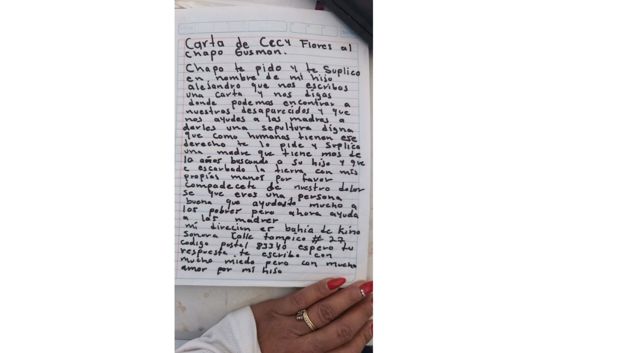 Carta de Cecy Flores al
chapo Gusmon.
Chapo te pido y te Suplico
en nombre de mi hiso
alesandro que nos escribos
una carta y nos digas
donde podemos encontrar a
nuestros desaparecidos y que
nos ayudes a las madres a
darles una sepultura digna
que como humanas tienen ese
derecho te lo pide y Suplico
una madre que tiene mas de
10 años buscando a su hijo y que
e escarbado la tierra con mis
propias manos por favor
Compadecete de nuestro dolor
se que eres una persona
buena que ayudaste mucho a
los pobres pero ahora ayuda
a las madres
mi direcion es bahia de Kino
Sonora Calle tampico # 27
Codigo postal 83340 espero tu
respuesta te escribo con
mucho miedo pero con mucho
amor por mi hiso